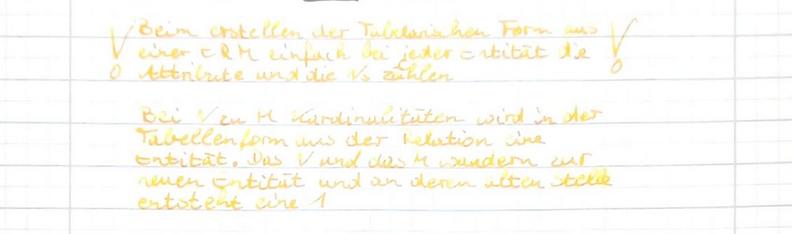 Beim erstellen der Tabellarischen Form aus
einer ERM einfach bei jeder Entität die
Attribute und die Ns zählen
Bei N zu M Kardinalitäten wird in der
Tabellenform aus der Relation eine
Entität. Das N und das M wandern zur
neuen Entität und an deren alten Stelle
entsteht eine 1